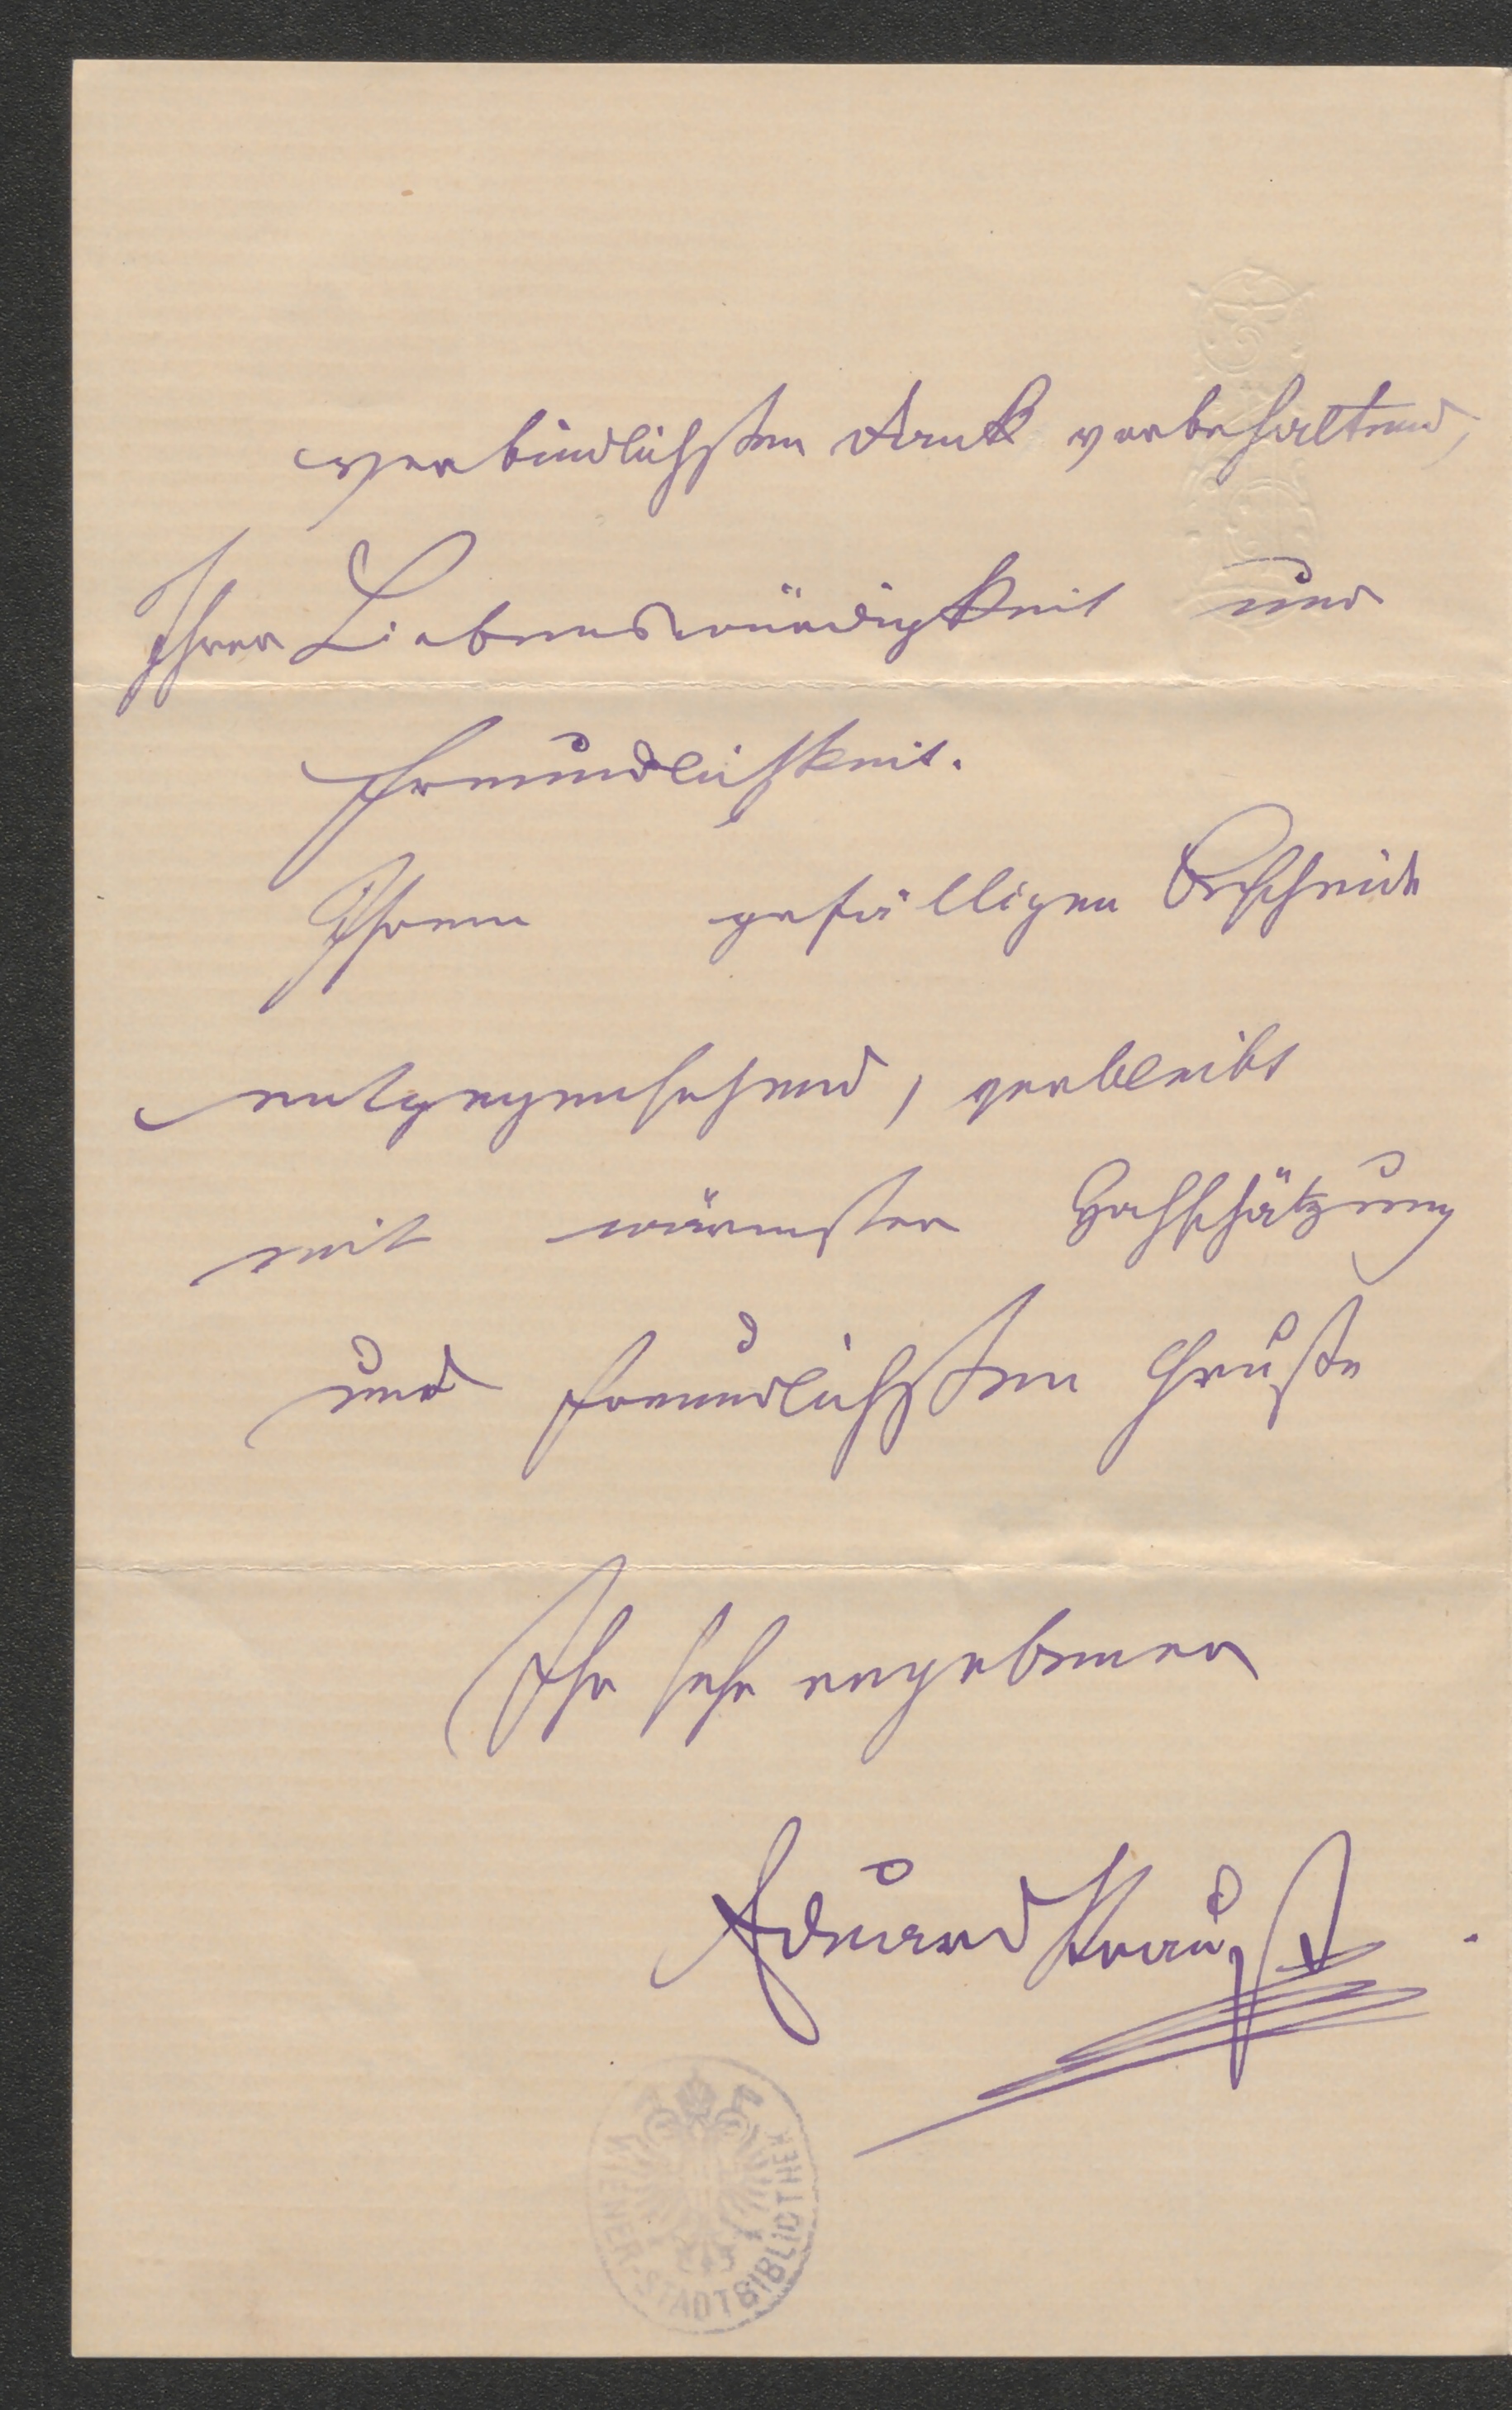 verbindlichsten Dank vorbehaltend,
Ihrer Liebenswürdigkeit und
Freundlichkeit.
Ihrem gefälligen Bescheide
entgegensehend, verbleibt
mit wärmster Hochschätzung
und freundlichsten Gruße
Ihr sehr ergebener
Eduard Strauß
WIENER STADTBIBLIOTHEK